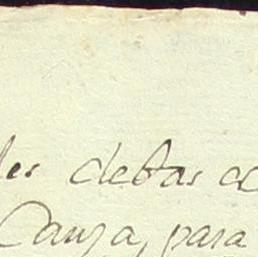 les debas
Cauza, para